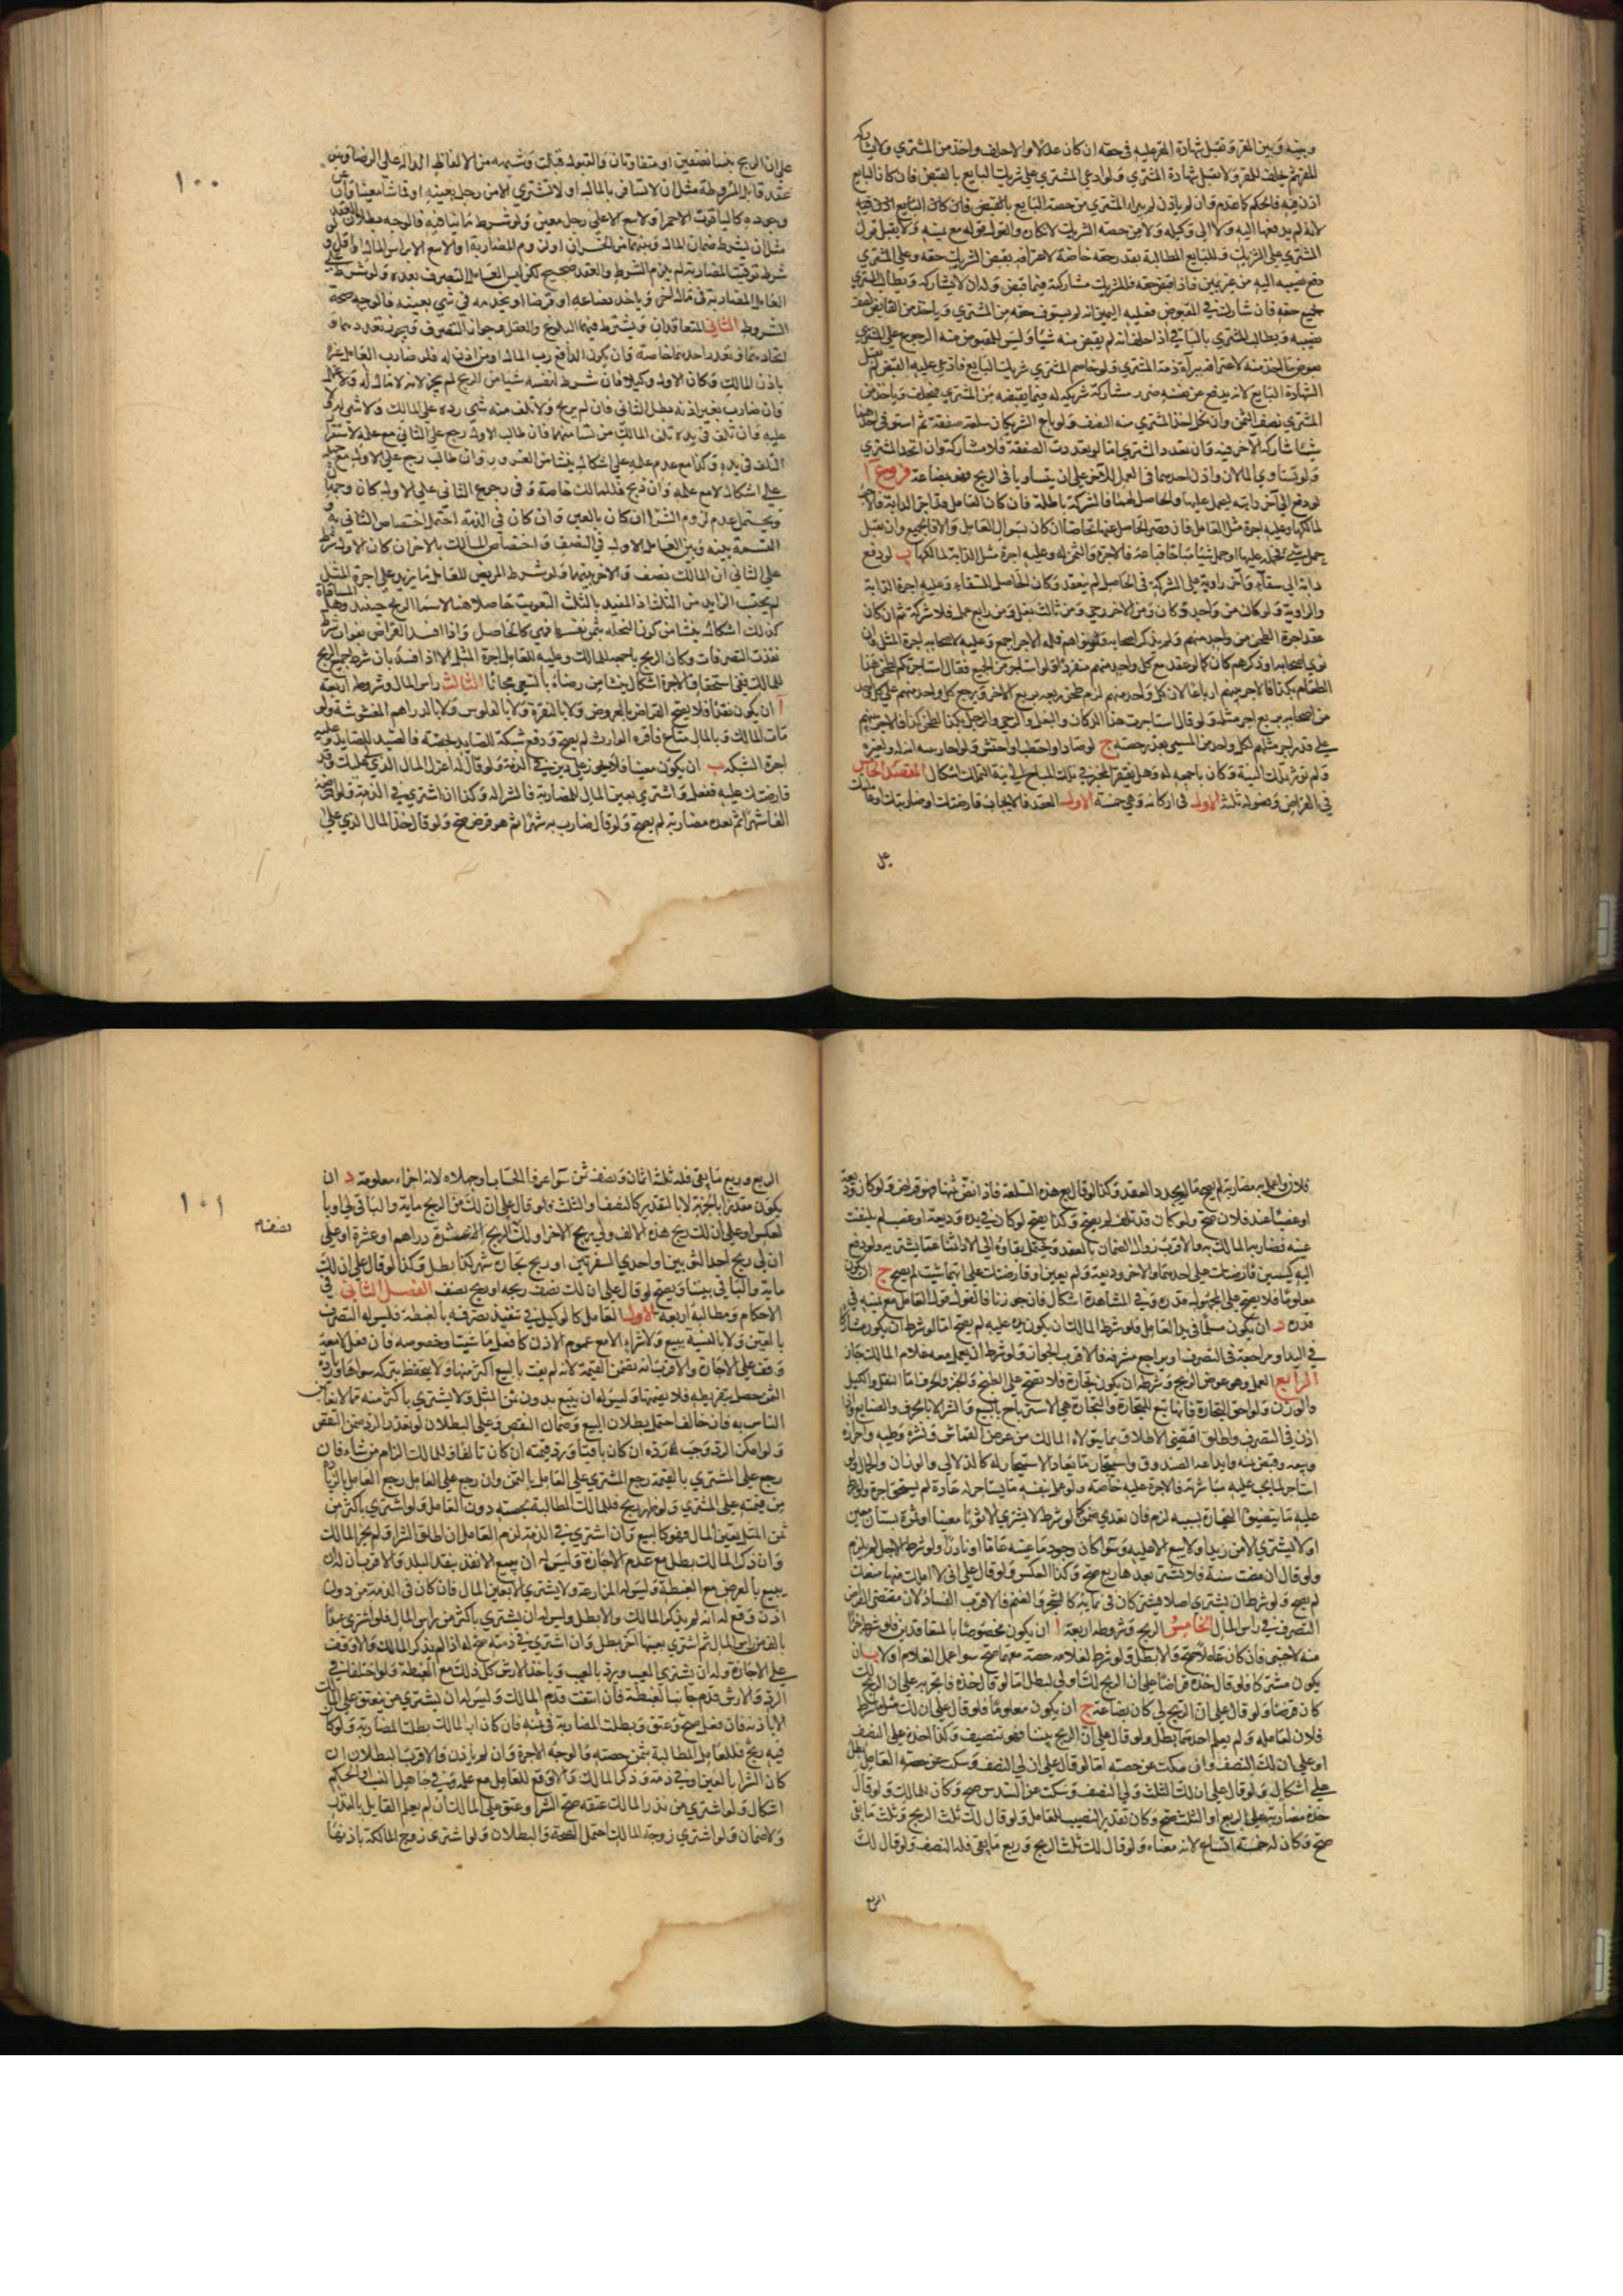 وبينه وبين المقر وتقبل شهادة المقر عليه في حقه ان كان عدلا والا حلف واخذ من المشتري ولا يشاركه
المقر ثم يحلف للمقر ولا تقبل شهادة المشتري ولو ادعى المشتري على شريك البايع بالقبض فان كان البايع
اذن فيه فالحكم كما تقدم وان لم ياذن لم يبرا المشتري من حصة البايع
لانه لم يدفعها اليه ولا الى وكيله ولا من حصة الشريك لانكاره والقول قوله مع يمينه ولا يقبل قول
المشتري على الشريك وللبايع المطالبة بقدر حقه خاصة لاعترافه بقبض الشريك حقه وعلى المشتري
دفع نصيبه اليه من غير يمين فاذا قبض حقه فللشريك مشاركته فيما قبض وله ان لا يشاركه ويطالب المشتري
بجميع حقه فان شاركه في المقبوض فعليه اليمين انه لم يستوف حقه من المشتري وياخذ من القابض نصف
نصيبه ويطالب المشتري بالباقي اذا حلف انه لم يقبض منه شيئا وليس للمقبوض منه الرجوع على المشتري
بعوض ما اخذ منه لاعترافه ببراءة ذمة المشتري ولو خاصم المشتري شريك البايع فادعى عليه القبض لم تقبل
الشهادة البايع لانه يدفع عن نفسه ضرر مشاركة شريكه له فيما يقبضه من المشتري فيحلف وياخذ من
المشتري نصف الثمن وان نكل اخذ المشتري منه النصف ولو باع الشريكان سلعة صفقة ثم استوفى احدهما
شيئا شاركه الاخر فيه وان تعدد المشتري اما لو تعددت الصفقة فلا مشاركة وان اتحد المشتري
ولو تساوى المالان واذن احدهما في العمل للاخر على ان يتساويا في الربح فهو بضاعة فروع ا
لو دفع الى اخر دابة ليحمل عليها والحاصل لهما فالشركة باطلة فان كان العامل قد اجر الدابة فالاجر
لمالكها وعليه اجرة مثل العامل
حمل شيء فحمله عليها او حمل شيئا مباحا فباعه فالاجرة والثمن له وعليه اجرة مثل الدابة لمالكها ب لو دفع
دابة الى سقاء واخر راوية على الشركة في الحاصل لم ينعقد وكان الحاصل للسقاء وعليه اجرة الدابة
والراوية ولو كان من واحد دكان ومن الاخر رحى ومن ثالث بغل ومن رابع عمل فلا شركة ثم ان كان
عقد اجرة الطحن من واحد منهم ولم يذكر اصحابه ولا نواهم فله الاجر اجمع وعليه لاصحابه اجرة المثل وان
نوى اصحابه او ذكرهم كان كما لو عقد مع كل واحد منهم منفردا ولو استاجر من الجميع فقال استاجرتكم لطحن هذا
الطعام بكذا فالاجر بينهم ارباعا لان كل واحد منهم لزمه طحن ربعه بربع الاجر ويرجع كل واحد منهم على كل واحد
من اصحابه بربع اجر مثله ولو قال استاجرت هذا الدكان والبغل والرحى والرجل بكذا لطحن كذا فالاجر بينهم
على قدر اجر مثلهم لكل واحد من المسمى بقدر حصته ج لو صاد او احتطب او احتش او حاز بنية انه له ولغيره
ولم تؤثر تلك النية وكان باجمعه له وهل يفتقر المحيز في تملك المباح الى نية التملك اشكال المقصد الخامس
في القراض وفصوله ثلثة الاول في اركانه وهي خمسة الاول العقد فالايجاب قارضتك او ضاربتك او عاملتك
على
١٠٠
على ان الربح بيننا نصفين او متفاوتان والقبول قبلت وشبهه من الالفاظ الدالة على الرضا
عقد قابل للشروط مثل ان لا تسافر بالمال او لا تشتري الا من رجل بعينه او قماشا معينا وان عز
وجوده كالياقوت الاحمر او لا تبيع الا على رجل معين ولو شرط ما ينافيه فالوجه بطلان العقد
مثل ان يشترط ضمان المال او سهما من الخسران او لزوم المضاربة او لا تبيع الا براس المال او اقل ولو
شرط توقيت المضاربة لم يلزم الشرط والعقد صحيح لكن ليس للعامل التصرف بعده ولو شرط على
العامل المضاربة في مال اخر او ياخذ بضاعة او قرضا او يخدمه في شيء بعينه فالوجه صحة
الشروط الثاني المتعاقدان ويشترط فيهما البلوغ والعقل وجواز التصرف ويجوز تعددهما و
اتحادهما وتعدد احدهما خاصة وان يكون الدافع رب المال او من اذن له فلو ضارب العامل غيره
باذن المالك وكان الاول وكيلا فان شرط لنفسه شيئا من الربح لم يجز لانه لا مال له ولا عمل
وان ضارب بغير اذنه بطل الثاني فان لم يربح ولا تلف منه شيء رده على المالك ولا شيء له ولا
عليه وان تلف في يده تلف المالك من شاء منهما فان طالب الاول رجع على الثاني مع علمه لاستقرار
التلف في يده وكذا مع عدم علمه على اشكال ينشا من الغرور وان طالب رجع على الاول مع جهله
على اشكال لا مع علمه وان ربح فللمالك خاصة وفي رجوع الثاني على الاول
ويحتمل عدم لزوم الشراء ان كان بالعين وان كان في الذمة احتمل اختصاص الثاني به و
القسمة بينه وبين العامل الاول في النصف واختصاص المالك بالاخر ان كان الاول شرط
على الثاني ان للمالك نصف والاخر بينهما ولو شرط المريض للعامل ما يزيد على اجرة المثل
لم يحتسب الزايد من الثلث اذ المقيد بالثلث التفويت حاصلا وهنا لاستثناء الربح حينئذ وهل المساقاة
كذلك اشكال ينشا من كون النخلة تثمر بنفسها فهي كالحاصل واذا فسد القراض بفوات شرط
نفذت التصرفات وكان الربح باجمعه للمالك وعليه للعامل اجرة المثل الا اذا فسد بان شرط جميع الربح
للمالك ففي استحقاق الاجرة اشكال ينشا من رضاه بالسعي مجانا الثالث راس المال وشروطه اربعة
ا ان يكون نقدا فلا يصح القراض بالعروض ولا بالنقرة ولا بالفلوس ولا بالدراهم المغشوشة ولو
مات المالك وبالمال متاع فاقره الوارث لم يصح ولو دفع شبكة للصايد بحصة فالصيد للصايد وعليه
اجرة الشبكة ب ان يكون معينا فلا يجوز على دين في الذمة ولو قال له اعزل المال الذي لي عليك وقد
قارضتك عليه ففعل واشترى بعين المال للمضاربة فالشراء له وكذا ان اشترى في الذمة ولو اقرضه
الفا شهرا ثم بعده مضاربة لم يصح ولو قال ضارب به شهرا ثم هو قرض صح ولو قال خذ المال الذي على
فلان واعمل به مضاربة لم يصح ما لم يجدد العقد وكذا لو قال بع هذه السلعة فاذا نض ثمنها فهو قراض ولو كان وديعة
او غصبا عند فلان صح ولو كان قد تلف لم يصح وكذا يصح لو كان في يده وديعة او غصب لم يتلفه
عنه فضاربه المالك به والاقرب زوال الضمان بالعقد ويحتمل بقاؤه الى الاداء ثمنا عما يشتريه ولو دفع
اليه كيسين قارضتك على احدهما والاخر وديعة ولم يعين او قارضتك على ايهما شئت لم يصح ج ان يكون
معلوما فلا يصح على المجهول قدره وفي المشاهدة اشكال فان جوزنا فالقول قول العامل مع يمينه في
قدره د ان يكون مسلما في يد العامل فلو شرط المالك ان يكون يده عليه لم يصح اما لو شرط ان يكون مشاركا
في اليد او مراجعته في التصرف او يراجع مشرفه فالاقرب الجواز ولو شرط ان يعمل معه غلام المالك جاز
الرابع العمل وهو عوض الربح وشرطه ان يكون تجارة فلا تصح على الطبخ والخبز والحرف اما النقل والكيل
والوزن ولواحق التجارة فانها تبع للتجارة والتجارة هي الاسترباح بالبيع والشراء لا بالحرف والصنايع واذا
اذن في التصرف واطلق اقتضى الاطلاق ما يتولاه المالك من عرض القماش ونشره وطيه واحرازه
وبيعه وقبض ثمنه وايداعه الصندوق واستيجار ما يعتاد الاستيجار له كالدلال والوزان والحمال ولو
استاجر لما يجب عليه مباشرته فالاجرة عليه خاصة ولو عمل بنفسه ما يستاجر له عادة لم يستحق اجرة ولو شرط
عليه ما يتضيق التجارة بسببه لزم فان تعدى ضمن كما لو شرط الا يشتري الا ثوبا معينا او ثمرة بستان معين
او لا يشتري الا من زيد او لا يبيع الا عليه وسواء كان وجود ما عينه عاما او نادرا ولو شرط الاجل لم يلزم
ولو قال ان مضت سنة فلا تشتر بعدها وبع صح وكذا العكس ولو قال على اني لا املك منعك
لم يصح ولو شرط ان يشتري اصلا يشتركان في نمائه كالشجر والغنم فالاقرب الفساد لان مقتضى القراض
التصرف في راس المال الخامس الربح وشروطه اربعة ا ان يكون مخصوصا بالمتعاقدين فلو شرط جزء
منه لاجنبي فان كان عاملا صح والا بطل ولو شرط لغلامه حصة معهما صح سواء عمل الغلام او لا ب ان
يكون مشتركا فلو قال خذه قراضا على ان الربح لك او لي بطل اما لو قال خذه فاتجر به على ان الربح لك
كان قرضا ولو قال على ان الربح لي كان بضاعة ج ان يكون معلوما فلو قال على ان لك مثل ما شرط
فلان لعامله ولم يعلم احدهما بطل ولو قال على ان الربح بيننا فهو تنصيف وكذا خذه على النصف
او على ان لك النصف وان سكت عن حصته اما لو قال على ان لي النصف وسكت عن حصة العامل بطل
على اشكال ولو قال على ان لك الثلث ولي النصف وسكت عن السدس صح وكان للمالك ولو قال
خذه مضاربة على الربع او الثلث صح وكان تقدير النصيب للعامل ولو قال لك ثلث الربح وثلث ما بقي
صح وكان له خمسة اتساع لانه معناه ولو قال لك ثلث الربح وربع ما بقي فله النصف ولو قال لك
الربع
١٠١
الربع وربع ما بقي فله ثلثة اثمان ونصف ثمن سواء عرفا الحساب او جهلاه لانه اجزاء معلومة د ان
يكون مقدرا بالجزئية لا بالتقدير كالنصف والثلث فلو قال على ان لك من الربح ماية والباقي لي او با
لعكس او على ان لك ربح هذه الالف ولي ربح الاخرى او لك نصف الربح الا عشرة دراهم او عشرة او على
ان لي ربح احد الثوبين او احدى السفرتين او ربح تجارة شهر كذا بطل وكذا لو قال على ان لك
ماية والباقي بيننا ويصح لو قال على ان لك نصف ربحه او ربح نصفه الفصل الثاني في
الاحكام ومطالبه اربعة الاول العامل كالوكيل في تنفيذ تصرفه بالغبطة فليس له التصرف
بالغبن ولا بالنسية بيع ولا شراء الا مع عموم الاذن كافعل ما شئت او خصوصه فان فعل لا معه
وقف على الاجازة والاقرب انه يضمن القيمة لانه لم يفت بالبيع اكثر منها ولا يتحفظ بتركه سواها وزيادة
الثمن حصل بتفريطه فلا يضمنها وليس له ان يبيع بدون ثمن المثل ولا يشتري باكثر منه مما لا يتغابن
الناس به فان خالف احتمل بطلان البيع وضمان النقص وعلى البطلان لو تعذر الرد ضمن النقص
ولو امكن الرد وجب رده ان كان باقيا ورد قيمته ان كان تالفا وللمالك الزام من شاء فان
رجع على المشتري بالقيمة رجع المشتري على العامل بالثمن وان رجع على العامل رجع العامل بالزايد
من قيمته على المشتري ولو ظهر ربح فللمالك المطالبة بحصته دون العامل ولو اشترى باكثر من
ثمن المثل بعين المال فهو كالبيع وان اشترى في الذمة لزم العامل ان اطلق الشراء ولم يجز المالك
وان ذكر المالك بطل مع عدم الاجازة وليس له ان يبيع الا نقدا بنقد البلد والاقرب ان له ان
يبيع بالعرض مع الغبطة وليس له المزارعة ولا يشتري الا بعين المال فان كان في الذمة من دون
اذن وقع له ان لم يذكر المالك والا بطل وليس له ان يشتري باكثر من راس المال فلو اشترى عبدا
بالف هي راس المال ثم اشترى بعينها اخر بطل وان اشترى في ذمته صح له اذا لم يذكر المالك والا وقف
على الاجازة وله ان يشتري المعيب ويرد بالعيب وياخذ الارش كل ذلك مع الغبطة ولو اختلفا في
الرد والارش قدم جانب الغبطة فان انتفت قدم المالك وليس له ان يشتري من ينعتق على المالك
الا باذنه فان فعل صح وعتق وبطلت المضاربة في ثمنه فان كان كل المال بطلت المضاربة ولو كان
فيه ربح فللعامل المطالبة بثمن حصته والوجه الاجرة وان لم ياذن فالاقرب البطلان ان
كان الشراء بالعين او في ذمته وذكر المالك والا وقع للعامل مع علمه وفي جاهل النسب او الحكم
اشكال ولو اشترى من نذر المالك عتقه صح الشراء وعتق على المالك ان لم يعلم العامل بالنذر
ولا ضمان ولو اشترى زوجة المالك احتمل الصحة والبطلان ولو اشترى زوج المالكة باذنها